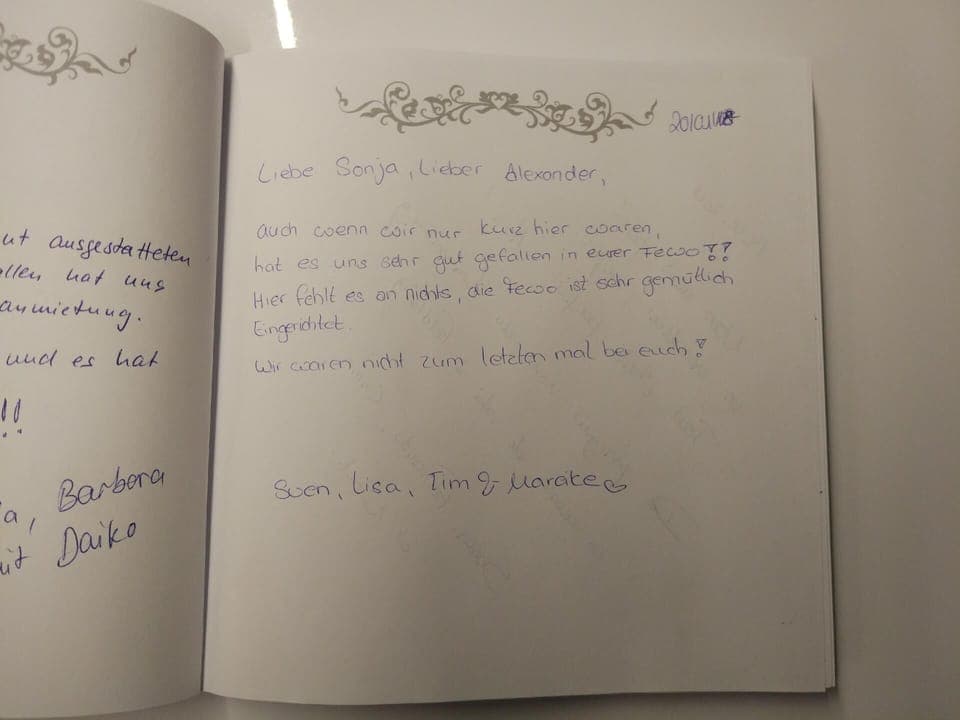 ut ausgestatteten
llen hat uns
anmietung.
und es hat
!!
a, Barbara
it Daiko
20/01/18
Liebe Sonja, Lieber Alexander,
auch wenn wir nur kurz hier waren,
hat es uns sehr gut gefallen in eurer Fewo!!
Hier fehlt es an nichts, die Fewo ist sehr gemütlich
Eingerichtet.
Wir waren nicht zum letzten mal bei euch!
Sven, Lisa, Tim &